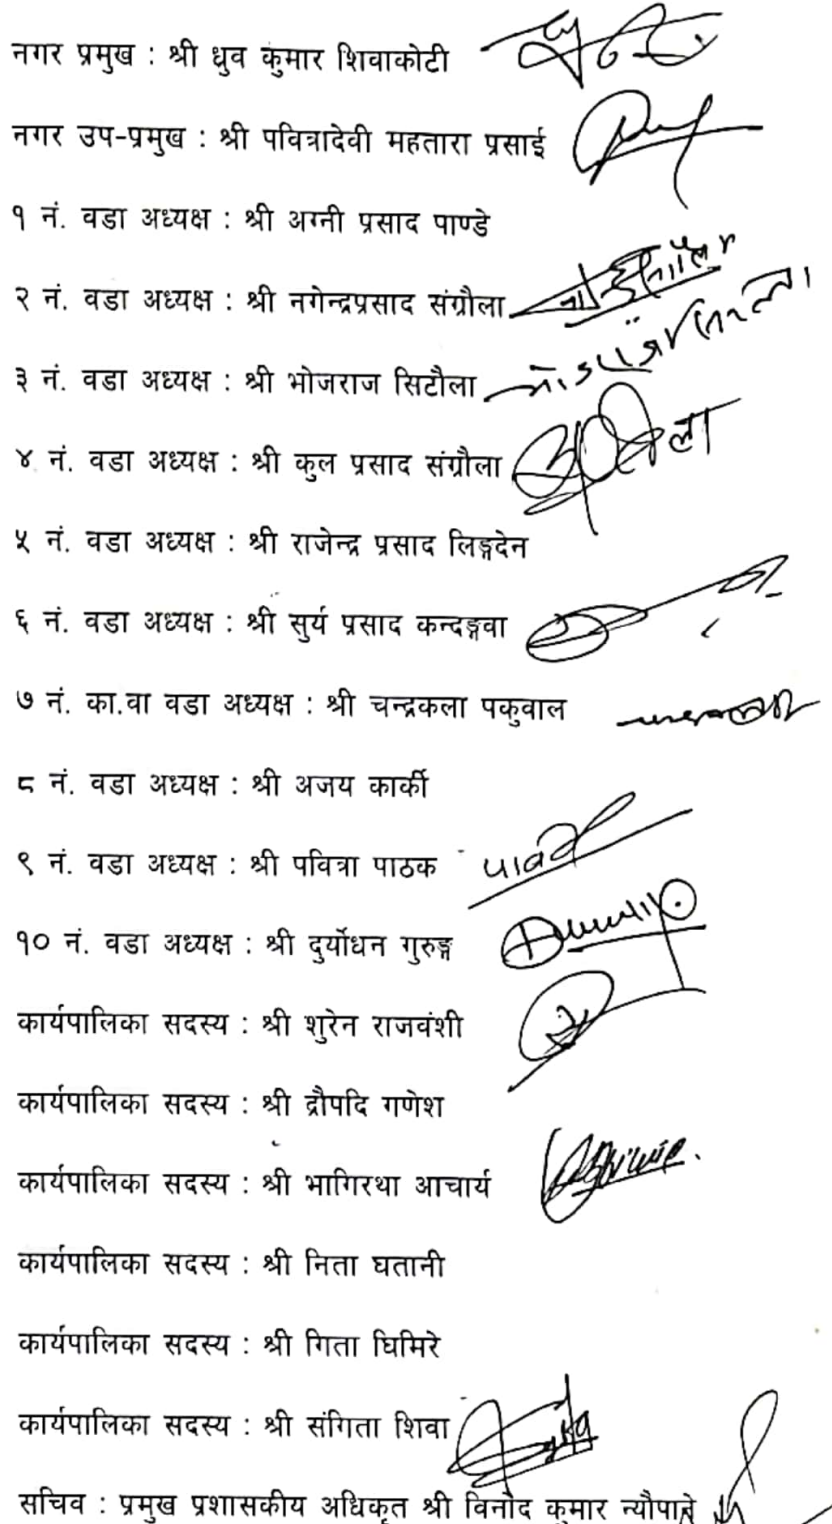 नगर प्रमुख : श्री धुव कुमार शिवाकोटी
नगर उप-प्रमुख : श्री पवित्रादेवी महतारा प्रसाई
१ नं. वडा अध्यक्ष : श्री अग्नी प्रसाद पाण्डे
२ नं. वडा अध्यक्ष : श्री नगेन्द्रप्रसाद संग्रौला
३ नं. वडा अध्यक्ष : श्री भोजराज सिटौला
४ नं. वडा अध्यक्ष : श्री कुल प्रसाद संग्रौला
५ नं. वडा अध्यक्ष : श्री राजेन्द्र प्रसाद लिङ्गदेन
६ नं. वडा अध्यक्ष : श्री सुर्य प्रसाद कन्दङ्गवा
७ नं. का.वा वडा अध्यक्ष : श्री चन्द्रकला पकुवाल
८ नं. वडा अध्यक्ष : श्री अजय कार्की
९ नं. वडा अध्यक्ष : श्री पवित्रा पाठक
१० नं. वडा अध्यक्ष : श्री दुर्योधन गुरुङ्ग
कार्यपालिका सदस्य : श्री शुरेन राजवंशी
कार्यपालिका सदस्य : श्री द्रौपदि गणेश
कार्यपालिका सदस्य : श्री भागिरथा आचार्य
कार्यपालिका सदस्य : श्री निता घतानी
कार्यपालिका सदस्य : श्री गिता घिमिरे
कार्यपालिका सदस्य : श्री संगिता शिवा
सचिव : प्रमुख प्रशासकीय अधिकृत श्री विनोद कुमार न्यौपाने